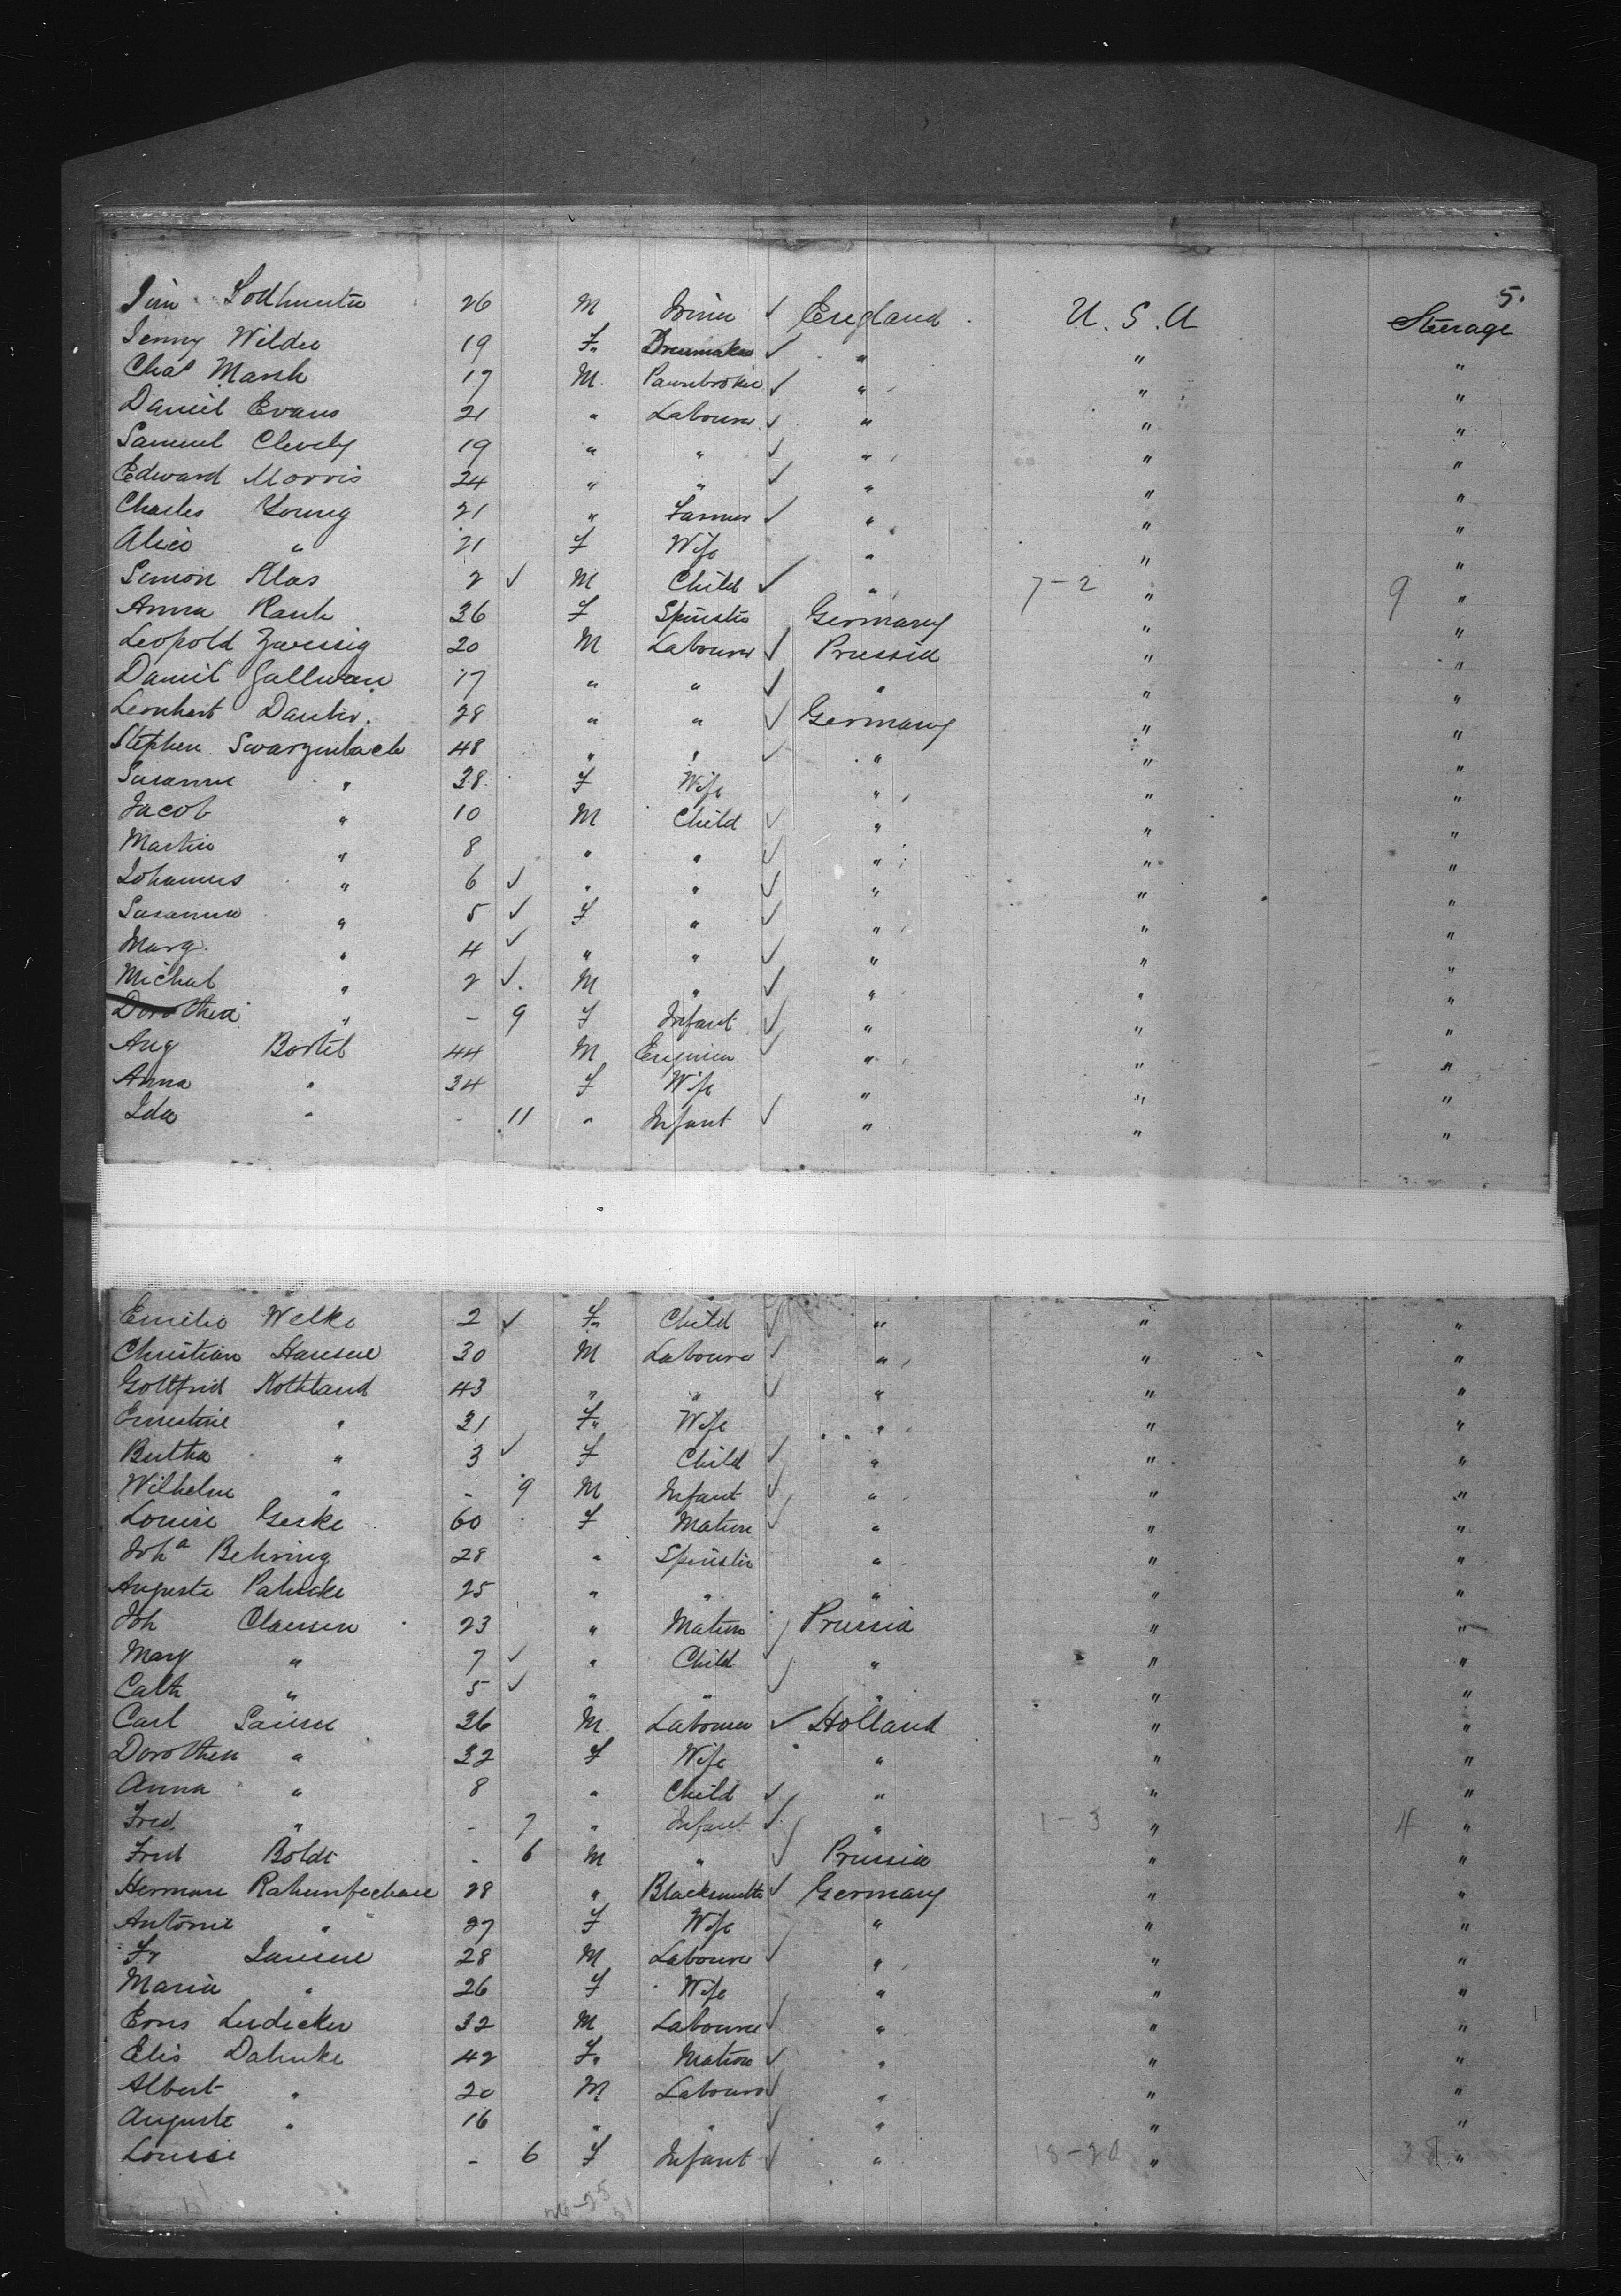 5.
26 M ✓ England U. S. A Steerage
Jenny Wilder 19 F. Dressmaker ✓ " " "
Chas Marsh 17 M. Pawnbroker ✓ " " "
Daniel Evans 21 " Labourer ✓ " " "
Samuel Clevely 19 " " ✓ " " "
Edward Morris 24 " " ✓ " " "
Charles Young 21 " Farmer ✓ " " "
Alice " 21 F Wife " " "
Simon Klas 2 ✓ M Child ✓ " 7-2 " 9 "
Anna Rauh 36 F Spinster Germany " "
Leopold Zweissig 20 M Labourer ✓ Prussia " "
Daniel Gallwan 17 " " ✓ " " "
Leonhart Dauber. 28 " " ✓ Germany " "
Stephen Swarzenbach 48 " " ✓ " " "
Susanne " 38 F Wife " " "
Jacob " 10 M Child ✓ " " "
Martin " 8 " " ✓ " " "
Johannes " 6 ✓ " " ✓ " " "
Susanna " 5 ✓ F " ✓ " " "
Marg. " 4 ✓ " " ✓ " " "
Michal " 2 ✓ M " ✓ " " "
Dorothea " - 9 F Infant ✓ " " "
Aug Bartel 44 M Engineer ✓ " " "
Anna " 34 F Wife " " "
Ida " - 11 " Infant ✓ " " "
Emilie Welke 2 ✓ F. Child ✓ " " "
Christian Hansen 30 M Labourer ✓ " " "
Gottfried Rothland 43 " " ✓ " " "
Ernestine " 31 F. Wife " " "
Bertha " 3 ✓ F Child ✓ " " "
Wilhelm " - 9 M Infant ✓ " " "
Louise Geske 60 F Matron ✓ " " "
Joha Behring 28 " Spinster " " "
Auguste 25 " " " " "
Joh Claessen 23 " Matron ✓ Prussia " "
Mary " 7 ✓ " Child ✓ " " "
Cath " 5 ✓ " " ✓ " " "
Carl 36 M Labourer ✓ Holland " "
Dorothea " 32 F Wife " " "
Anna " 8 " Child ✓ " " "
Fred. " - 7 " Infant ✓ " 1-3 " 4 "
Boldt - 6 M " ✓ Prussia " "
Herman 28 " Blacksmith ✓ Germany " "
Antonie " 27 F Wife " " "
Fr Jansen 28 M Labourer ✓ " " "
Maria " 26 F Wife " " "
Erns Ludecker 32 M Labourer ✓ " " "
Elis Dahnke 42 F. Matron ✓ " " "
Albert " 20 M Labourer ✓ " " "
Auguste " 16 " " ✓ " " "
Louise - 6 F Infant ✓ " 18-20 " 38 "
26-25